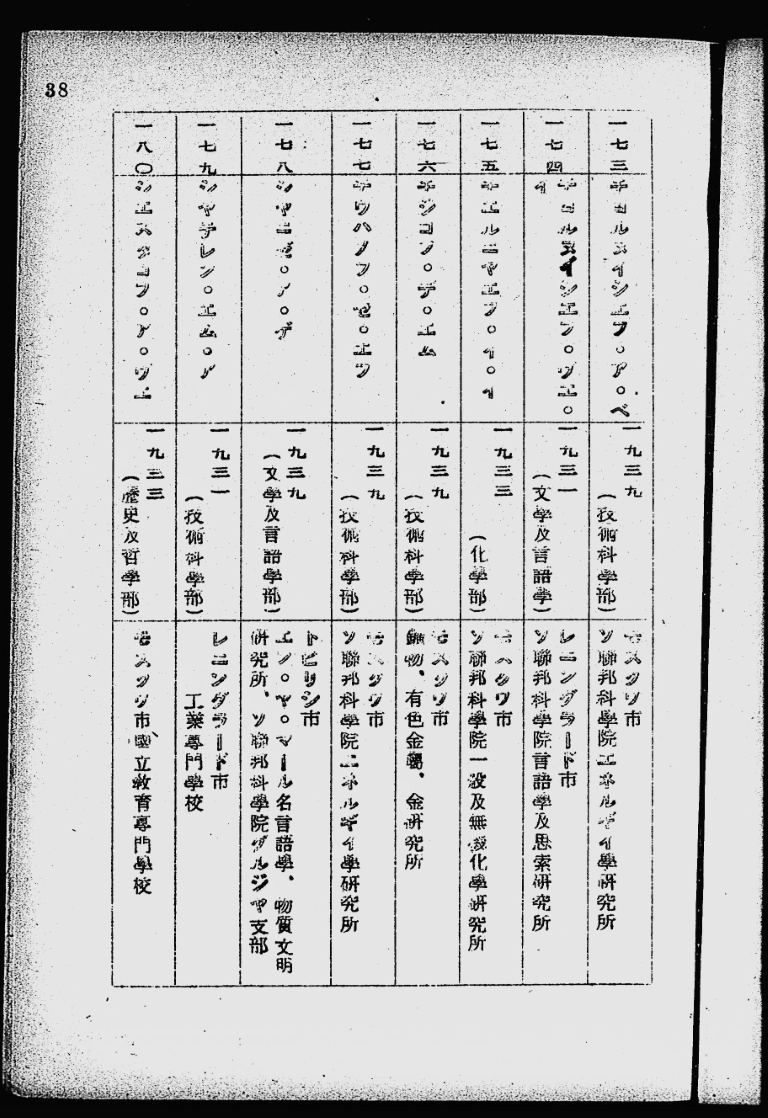 38
一七三
チヨルヌイシエフ。ア。ベ
一九三九
(技術科學部)
モスクワ市
ソ聯邦科學院エネルギイ學研究所
一七四
チヨルヌイシエフ。ヴエ。
イ
一九三一
(文學及言語學)
レニングラード市
ソ聯邦科學院言語學及思索研究所
一七五
チエルニヤエフ。イ。イ
一九三三
(化學部)
モスクワ市
ソ聯邦科學院一般及無機化學研究所
一七六
チジコフ。デ。エム
一九三九
(技術科學部)
モスクワ市
鑛物、有色金屬、金研究所
一七七
チウハノフ。ゼ。エフ
一九三九
(技術科學部)
モスクワ市
ソ聯邦科學院エネルギイ學研究所
一七八
シヤニゼ。ア。ゲ
一九三九
(文學及言語學部)
トビリシ市
エン。ヤ。マール名言語學、物質文明
研究所、ソ聯邦科學院グルジヤ支部
一七九
シヤテレン。エム。ア
一九三一
(技術科學部)
レニングラード市
工業專門學校
一八〇
シエスタコフ。ア。ヴエ
一九三三
(歷史及哲學部)
モスクワ市國立敎育專門學校